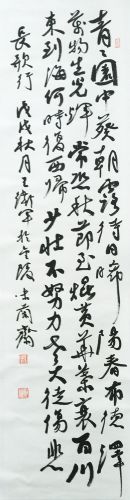 青青園中葵朝露待日晞陽春布德澤
萬物生光輝常恐秋節至焜黃華葉衰百川
東到海何時復西歸少壯不努力老大徒傷悲
長歌行戊戌秋月王鐵軍於金陵